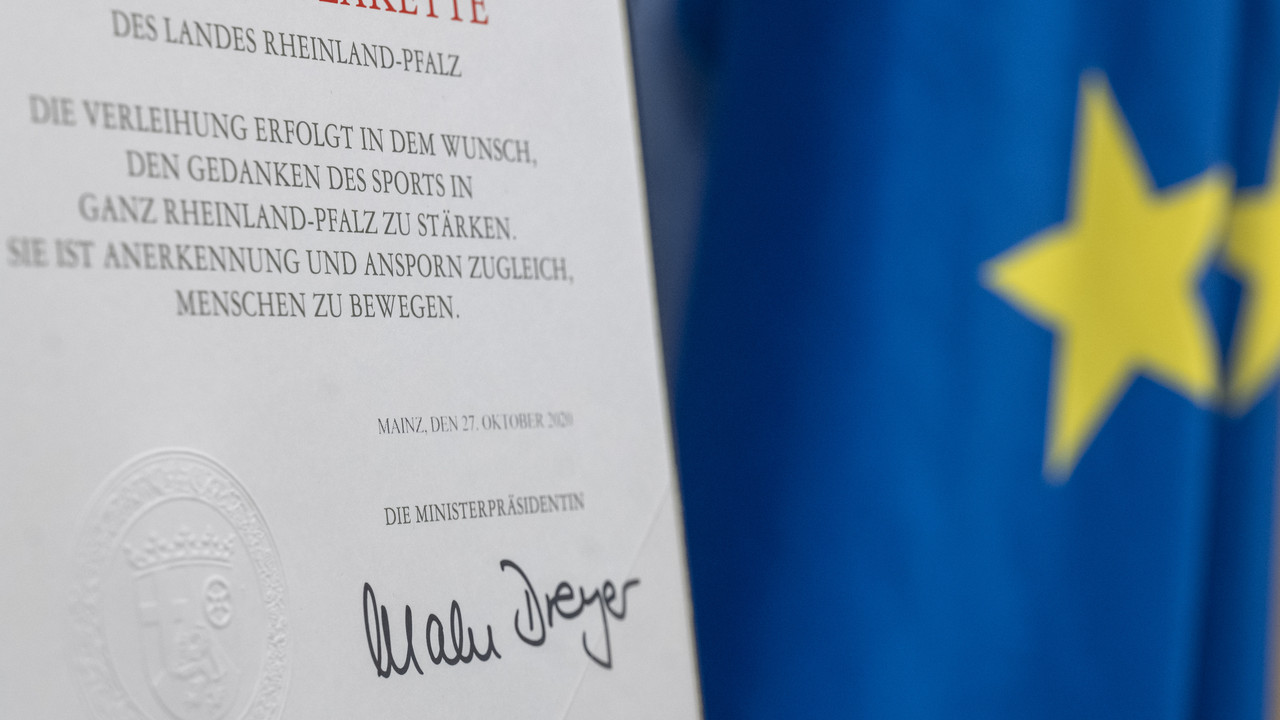 DES LANDES RHEINLAND-PFALZ
DIE VERLEIHUNG ERFOLGT IN DEM WUNSCH,
DEN GEDANKEN DES SPORTS IN
GANZ RHEINLAND-PFALZ ZU STÄRKEN.
SIE IST ANERKENNUNG UND ANSPORN ZUGLEICH,
MENSCHEN ZU BEWEGEN.
MAINZ, DEN 27. OKTOBER 2020
DIE MINISTERPRÄSIDENTIN
Malu Dreyer